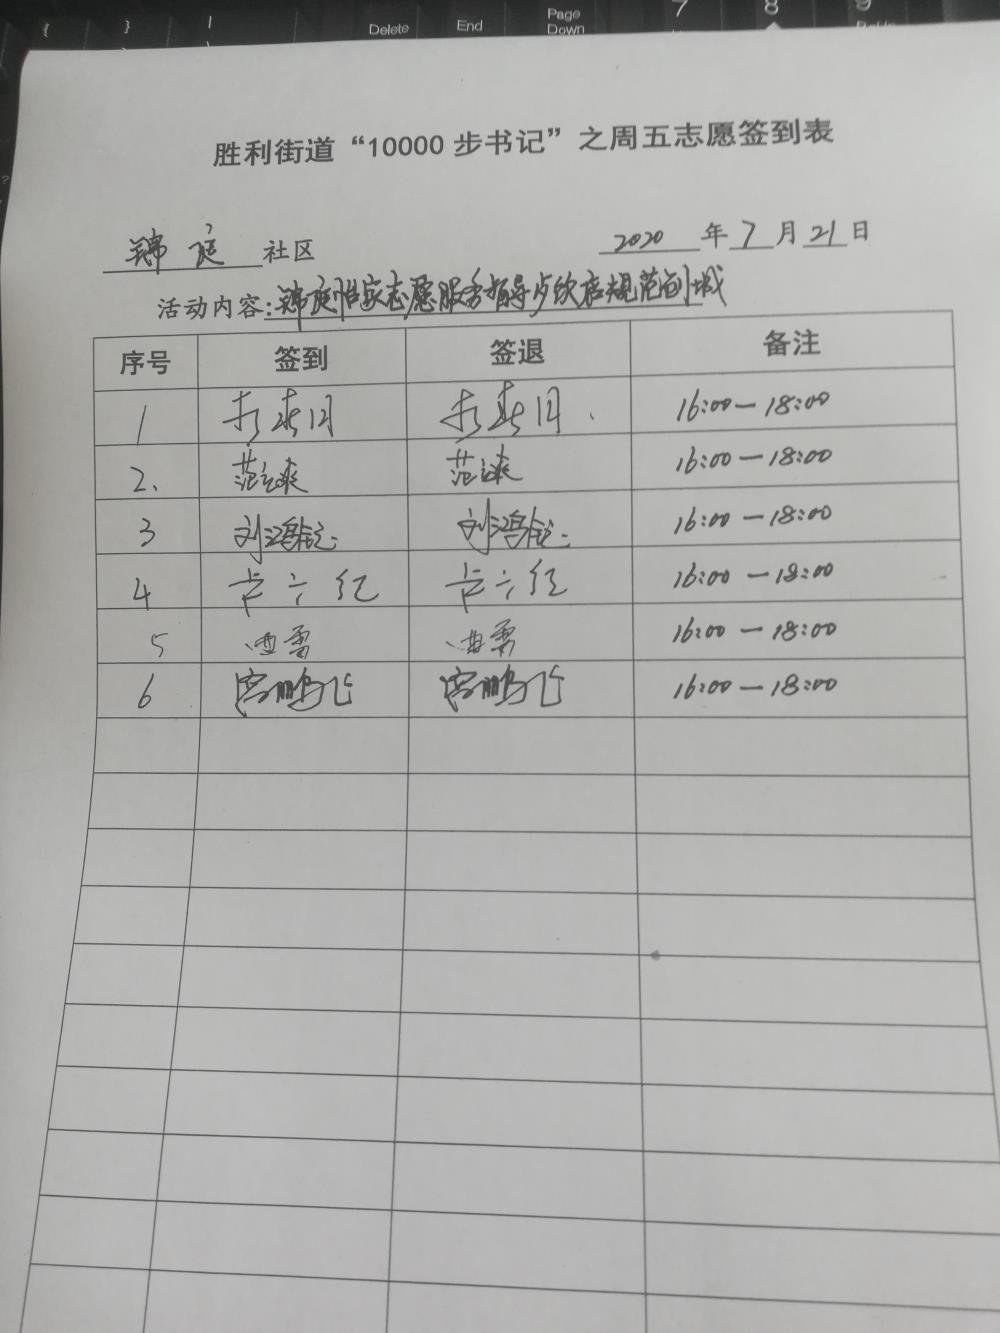 { } | Delete End Page 7 8 9
\ Down
胜利街道“10000 步书记”之周五志愿签到表
锦庭 社区 2020 年 7 月 21 日
活动内容:锦庭怡家志愿服务指导点位店规范创城
序号 签到 签退 备注
1 16:00—18:00
2、 范立爽 范立爽 16:00—18:00
3 刘鸿锭 刘鸿锭 16:00—18:00
4 卡立红 卡立红 16:00—18:00
5 曲勇 曲勇 16:00—18:00
6 宫鹏飞 宫鹏飞 16:00—18:00